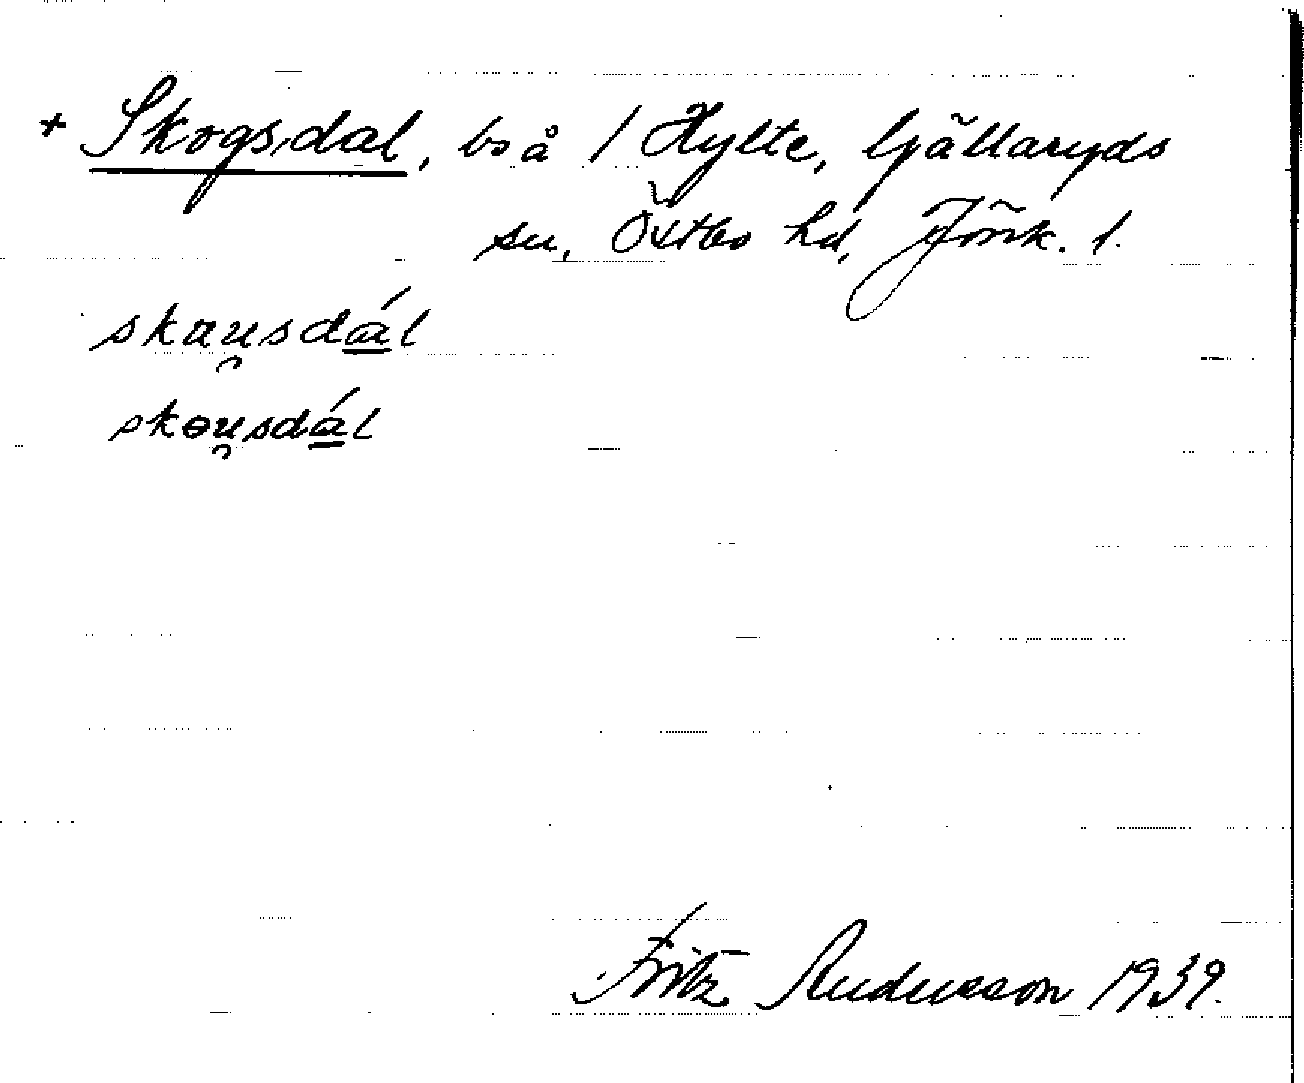 + Skogsdal, bs å 1 Hylte, Gällaryds
sn, Östbo hd, Jönk. l.
skau̯sdál
skɵu̯sdál
Fritz Andersson 1939.